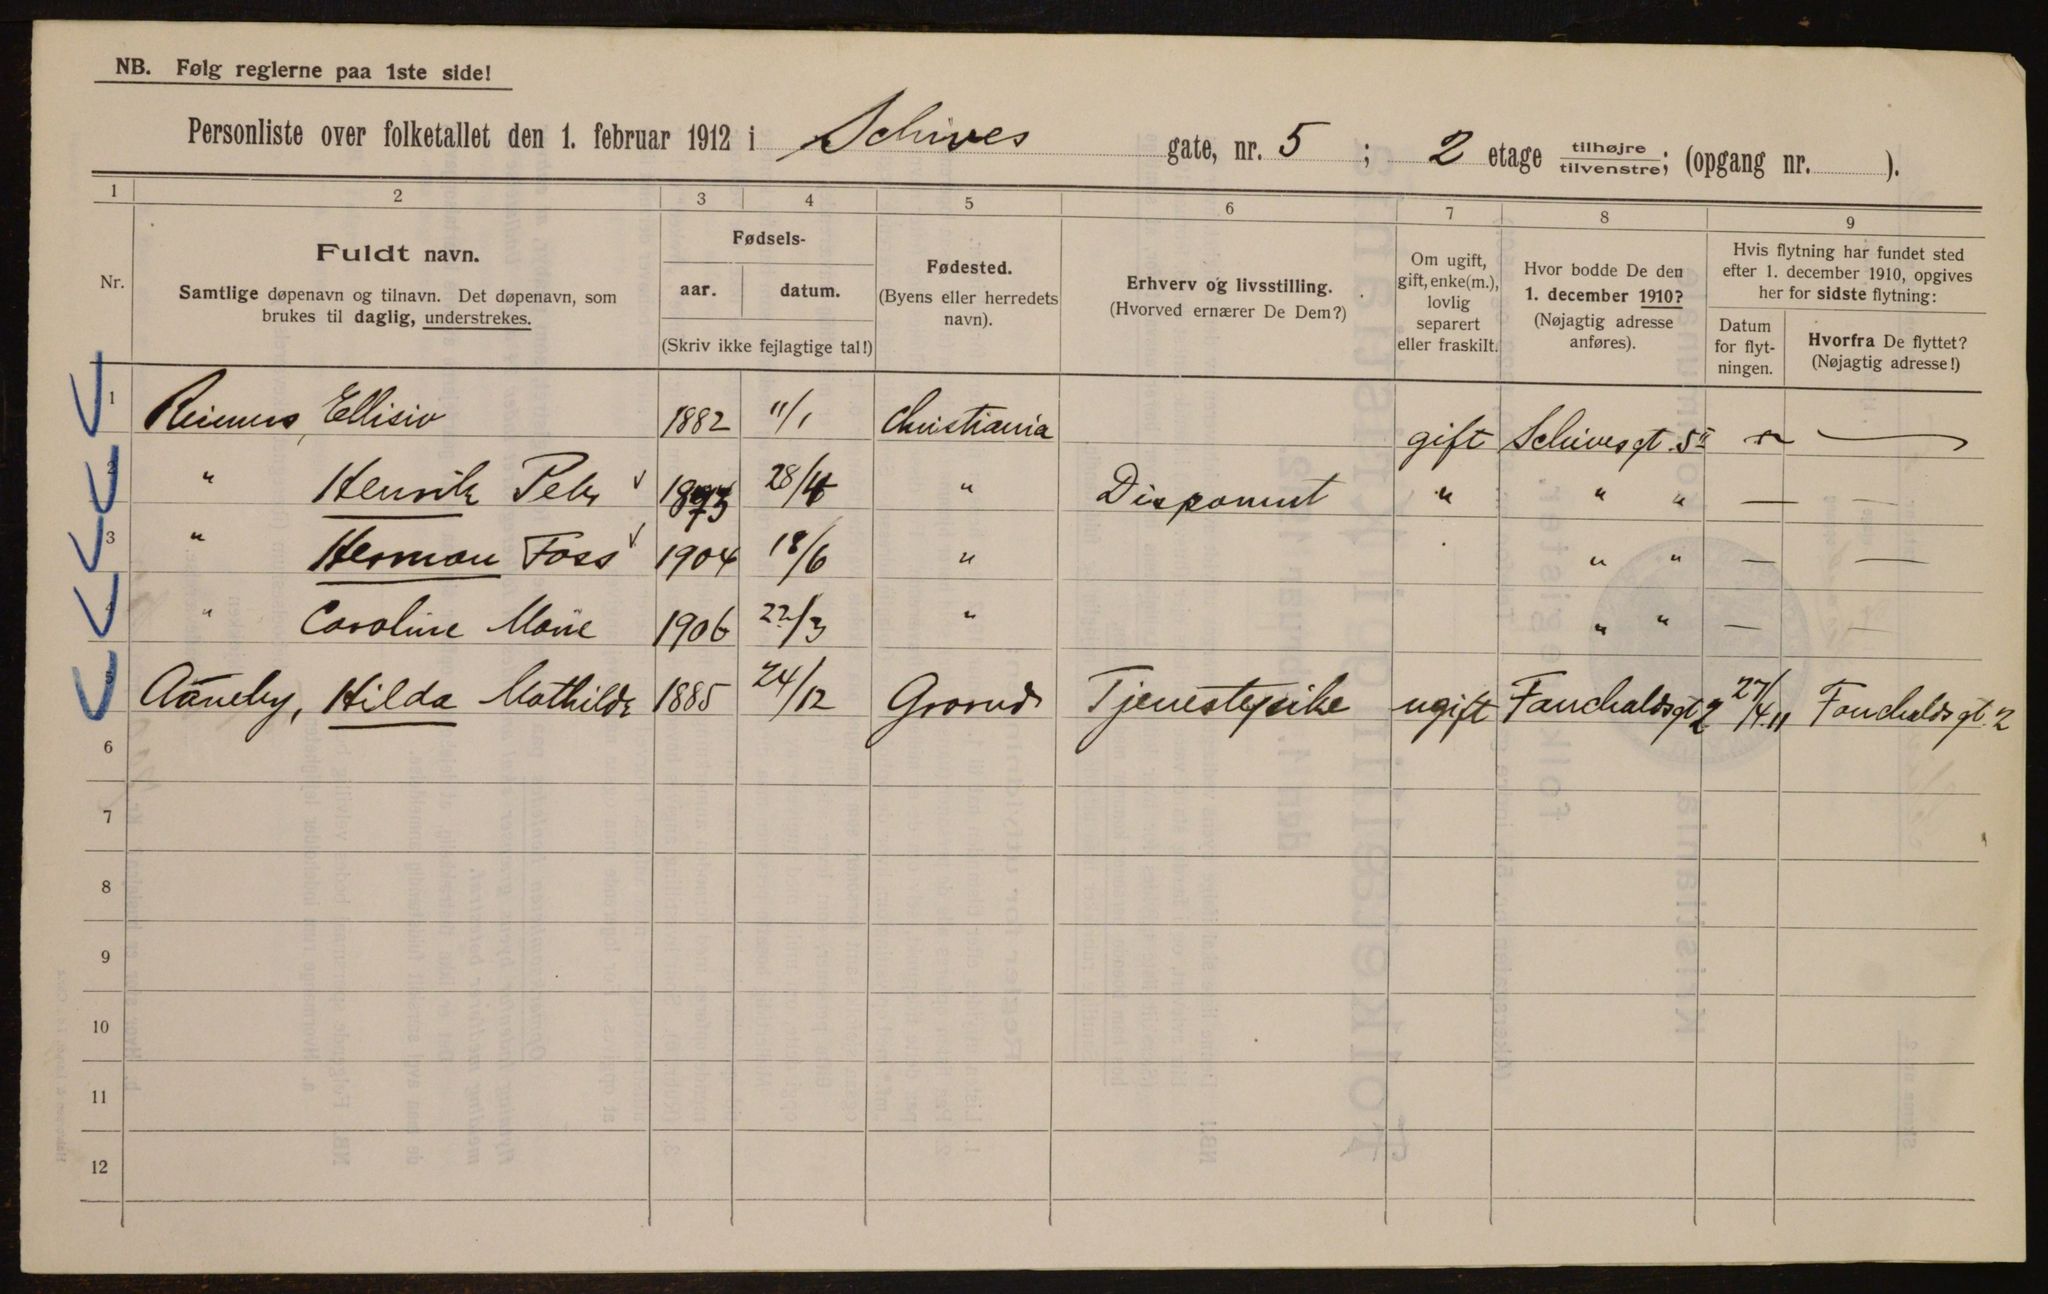 NB. Følg reglerne paa 1ste side!
Personliste over folketallet den 1. februar 1912 i Schives gate, nr. 5 ; 2 etage tilhøjre / tilvenstre; (opgang nr. ).
1 2 3 4 5 6 7 8 9
Nr.
Fuldt navn.
Samtlige døpenavn og tilnavn. Det døpenavn, som
brukes til daglig, understrekes.
Fødsels-
aar. datum.
(Skriv ikke fejlagtige tal!)
Fødested.
(Byens eller herredets
navn).
Erhverv og livsstilling.
(Hvorved ernærer De Dem?)
Om ugift,
gift, enke(m.),
lovlig
separert
eller fraskilt.
Hvor bodde De den
1. december 1910?
(Nøjagtig adresse
anføres).
Hvis flytning har fundet sted
efter 1. december 1910, opgives
her for sidste flytning:
Datum
for flyt-
ningen.
Hvorfra De flyttet?
(Nøjagtig adresse!)
1 Reimers, Ellisiv 1882 11/1 Christiania gift Schivesgt. 5 II — —
2 " Henrik Peter 1873 28/4 " Disponent " " " — —
3 " Herman Foss 1904 18/6 " " " — —
4 " Caroline Marie 1906 22/3 " " " — —
5 Aaneby, Hilda Mathilde 1885 24/12 Grorud Tjenestepike ugift Fauchaldsgt 2 27/4.11 Fauchaldsgt. 2
6
7
8
9
10
11
12